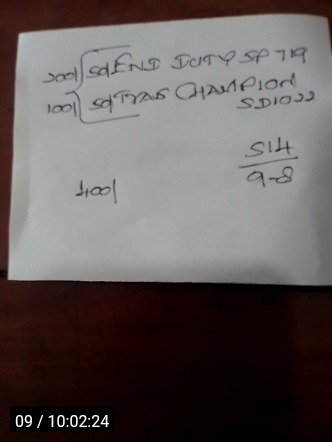 200/ SQ END DUTY SP 719
100/ SQ TYAS CHAMPION
SD1022
S14
9-8
400/
09 / 10:02:24